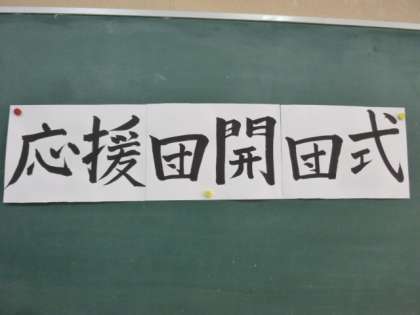 応援団開団式